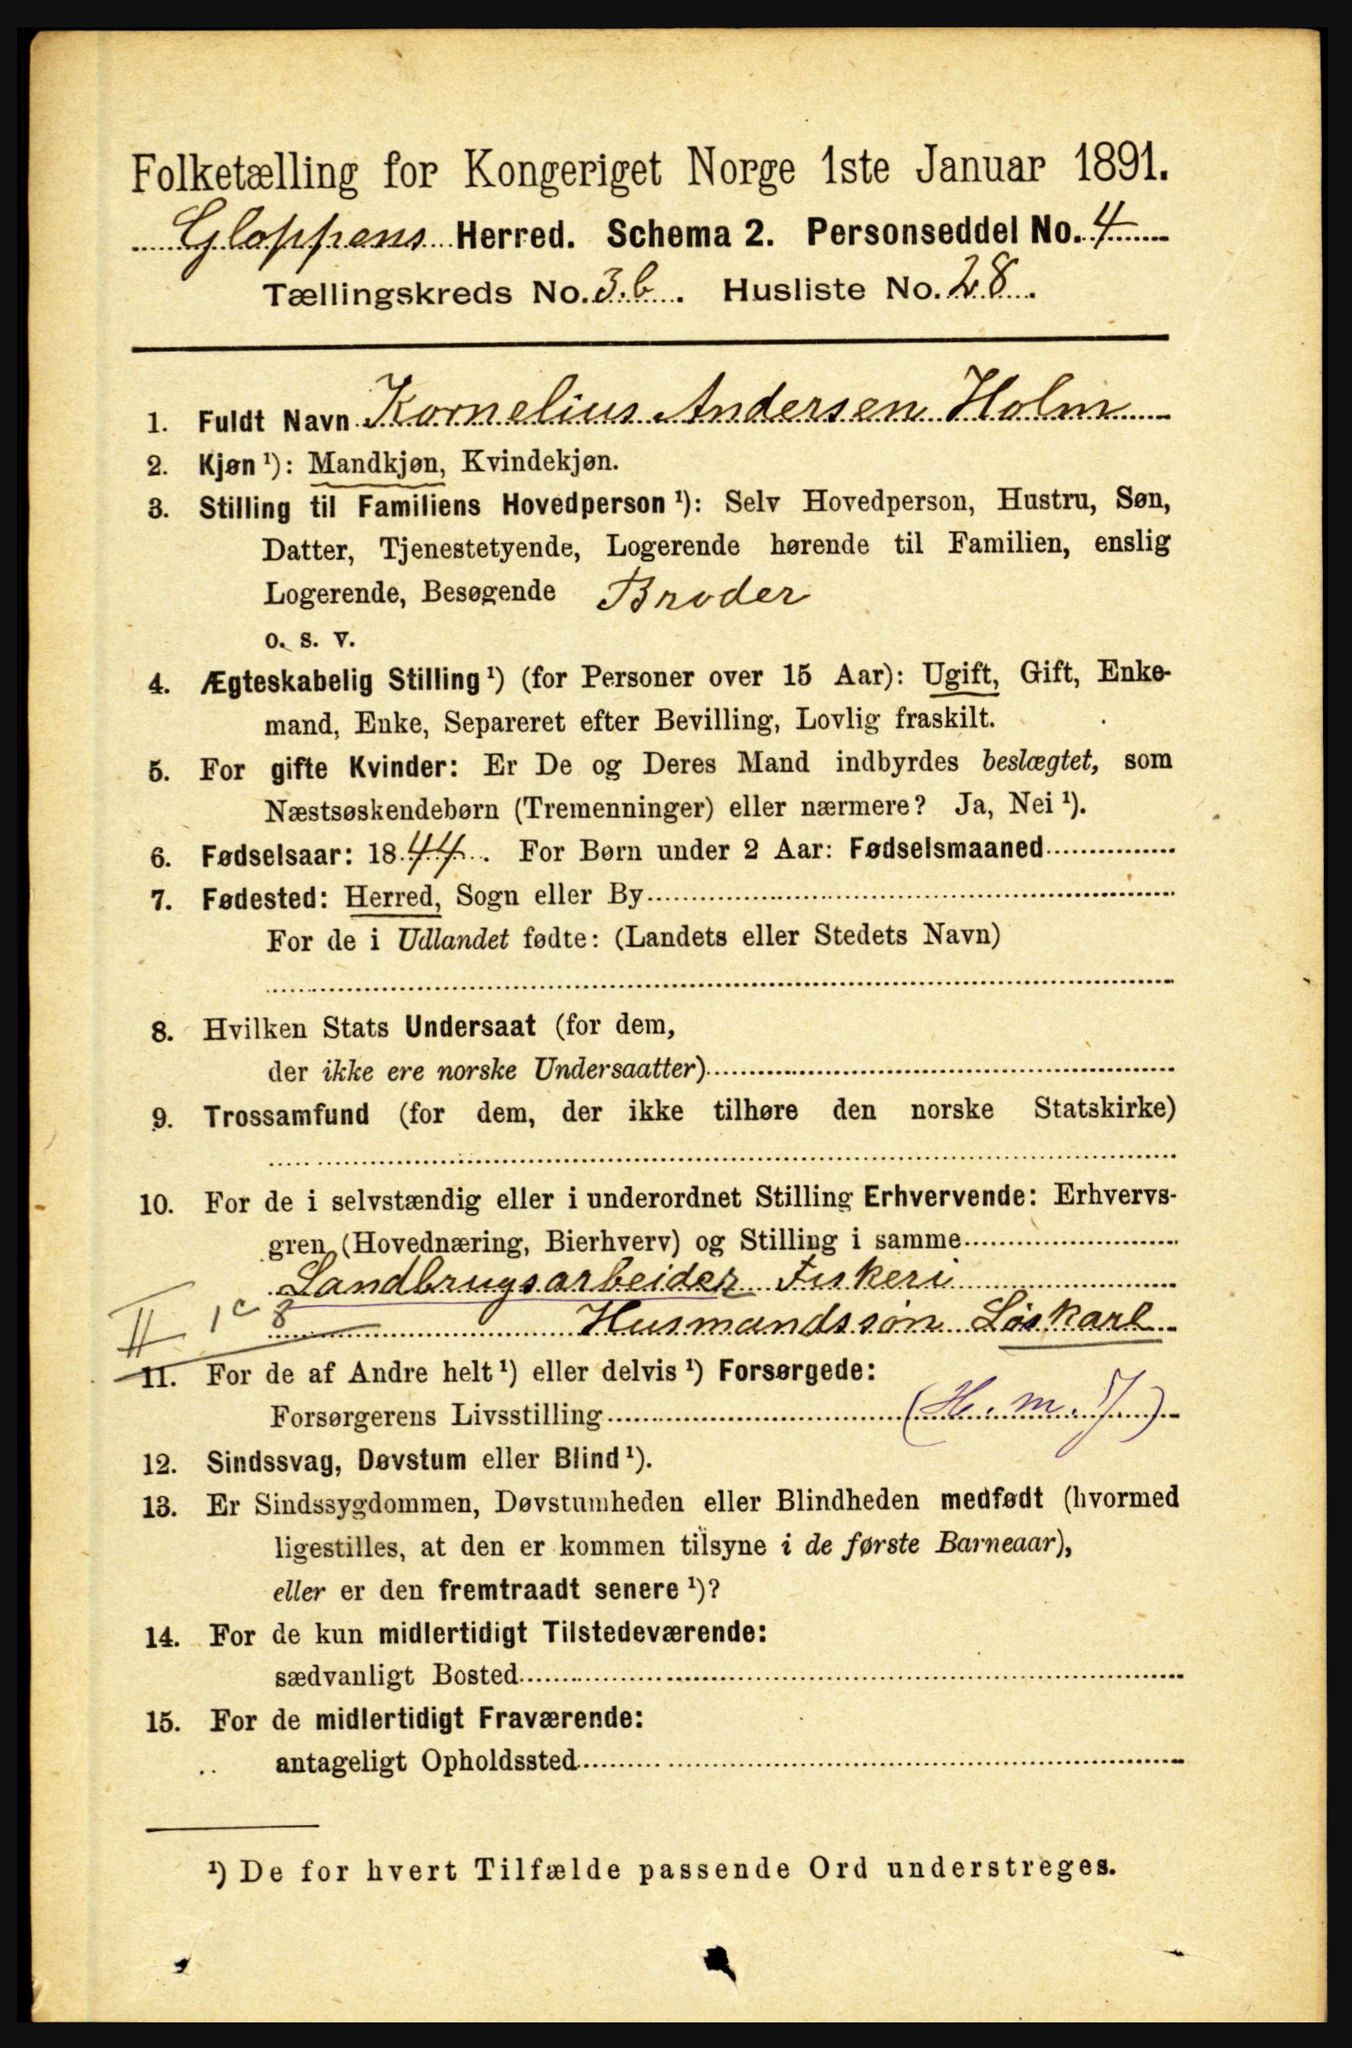 Folketælling for Kongeriget Norge 1ste Januar 1891.
Gloppens Herred. Schema 2. Personseddel No. 4
Tællingskreds No. 3b. Husliste No. 28.
1. Fuldt Navn Kornelius Andersen Holm
2. Kjøn ¹): Mandkjøn, Kvindekjøn.
3. Stilling til Familiens Hovedperson ¹): Selv Hovedperson, Hustru, Søn,
Datter, Tjenestetyende, Logerende hørende til Familien, enslig
Logerende, Besøgende Broder
o. s. v.
4. Ægteskabelig Stilling ¹) (for Personer over 15 Aar): Ugift, Gift, Enke-
mand, Enke, Separeret efter Bevilling, Lovlig fraskilt.
5. For gifte Kvinder: Er De og Deres Mand indbyrdes beslægtet, som
Næstsøskendebørn (Tremenninger) eller nærmere? Ja, Nei ¹).
6. Fødselsaar: 1844. For Børn under 2 Aar: Fødselsmaaned
7. Fødested: Herred, Sogn eller By
For de i Udlandet fødte: (Landets eller Stedets Navn)
8. Hvilken Stats Undersaat (for dem,
der ikke ere norske Undersaatter)
9. Trossamfund (for dem, der ikke tilhøre den norske Statskirke)
10. For de i selvstændig eller i underordnet Stilling Erhvervende: Erhvervs-
gren (Hovednæring, Bierhverv) og Stilling i samme
Landbrugsarbeider Fiskeri
II 1c 8 Husmandssøn Løskarl
11. For de af Andre helt ¹) eller delvis ¹) Forsørgede:
Forsørgerens Livsstilling (H. m. J)
12. Sindssvag, Døvstum eller Blind ¹).
13. Er Sindssygdommen, Døvstumheden eller Blindheden medfødt (hvormed
ligestilles, at den er kommen tilsyne i de første Barneaar),
eller er den fremtraadt senere ¹)?
14. For de kun midlertidigt Tilstedeværende:
sædvanligt Bosted
15. For de midlertidigt Fraværende:
antageligt Opholdssted
¹) De for hvert Tilfælde passende Ord understreges.